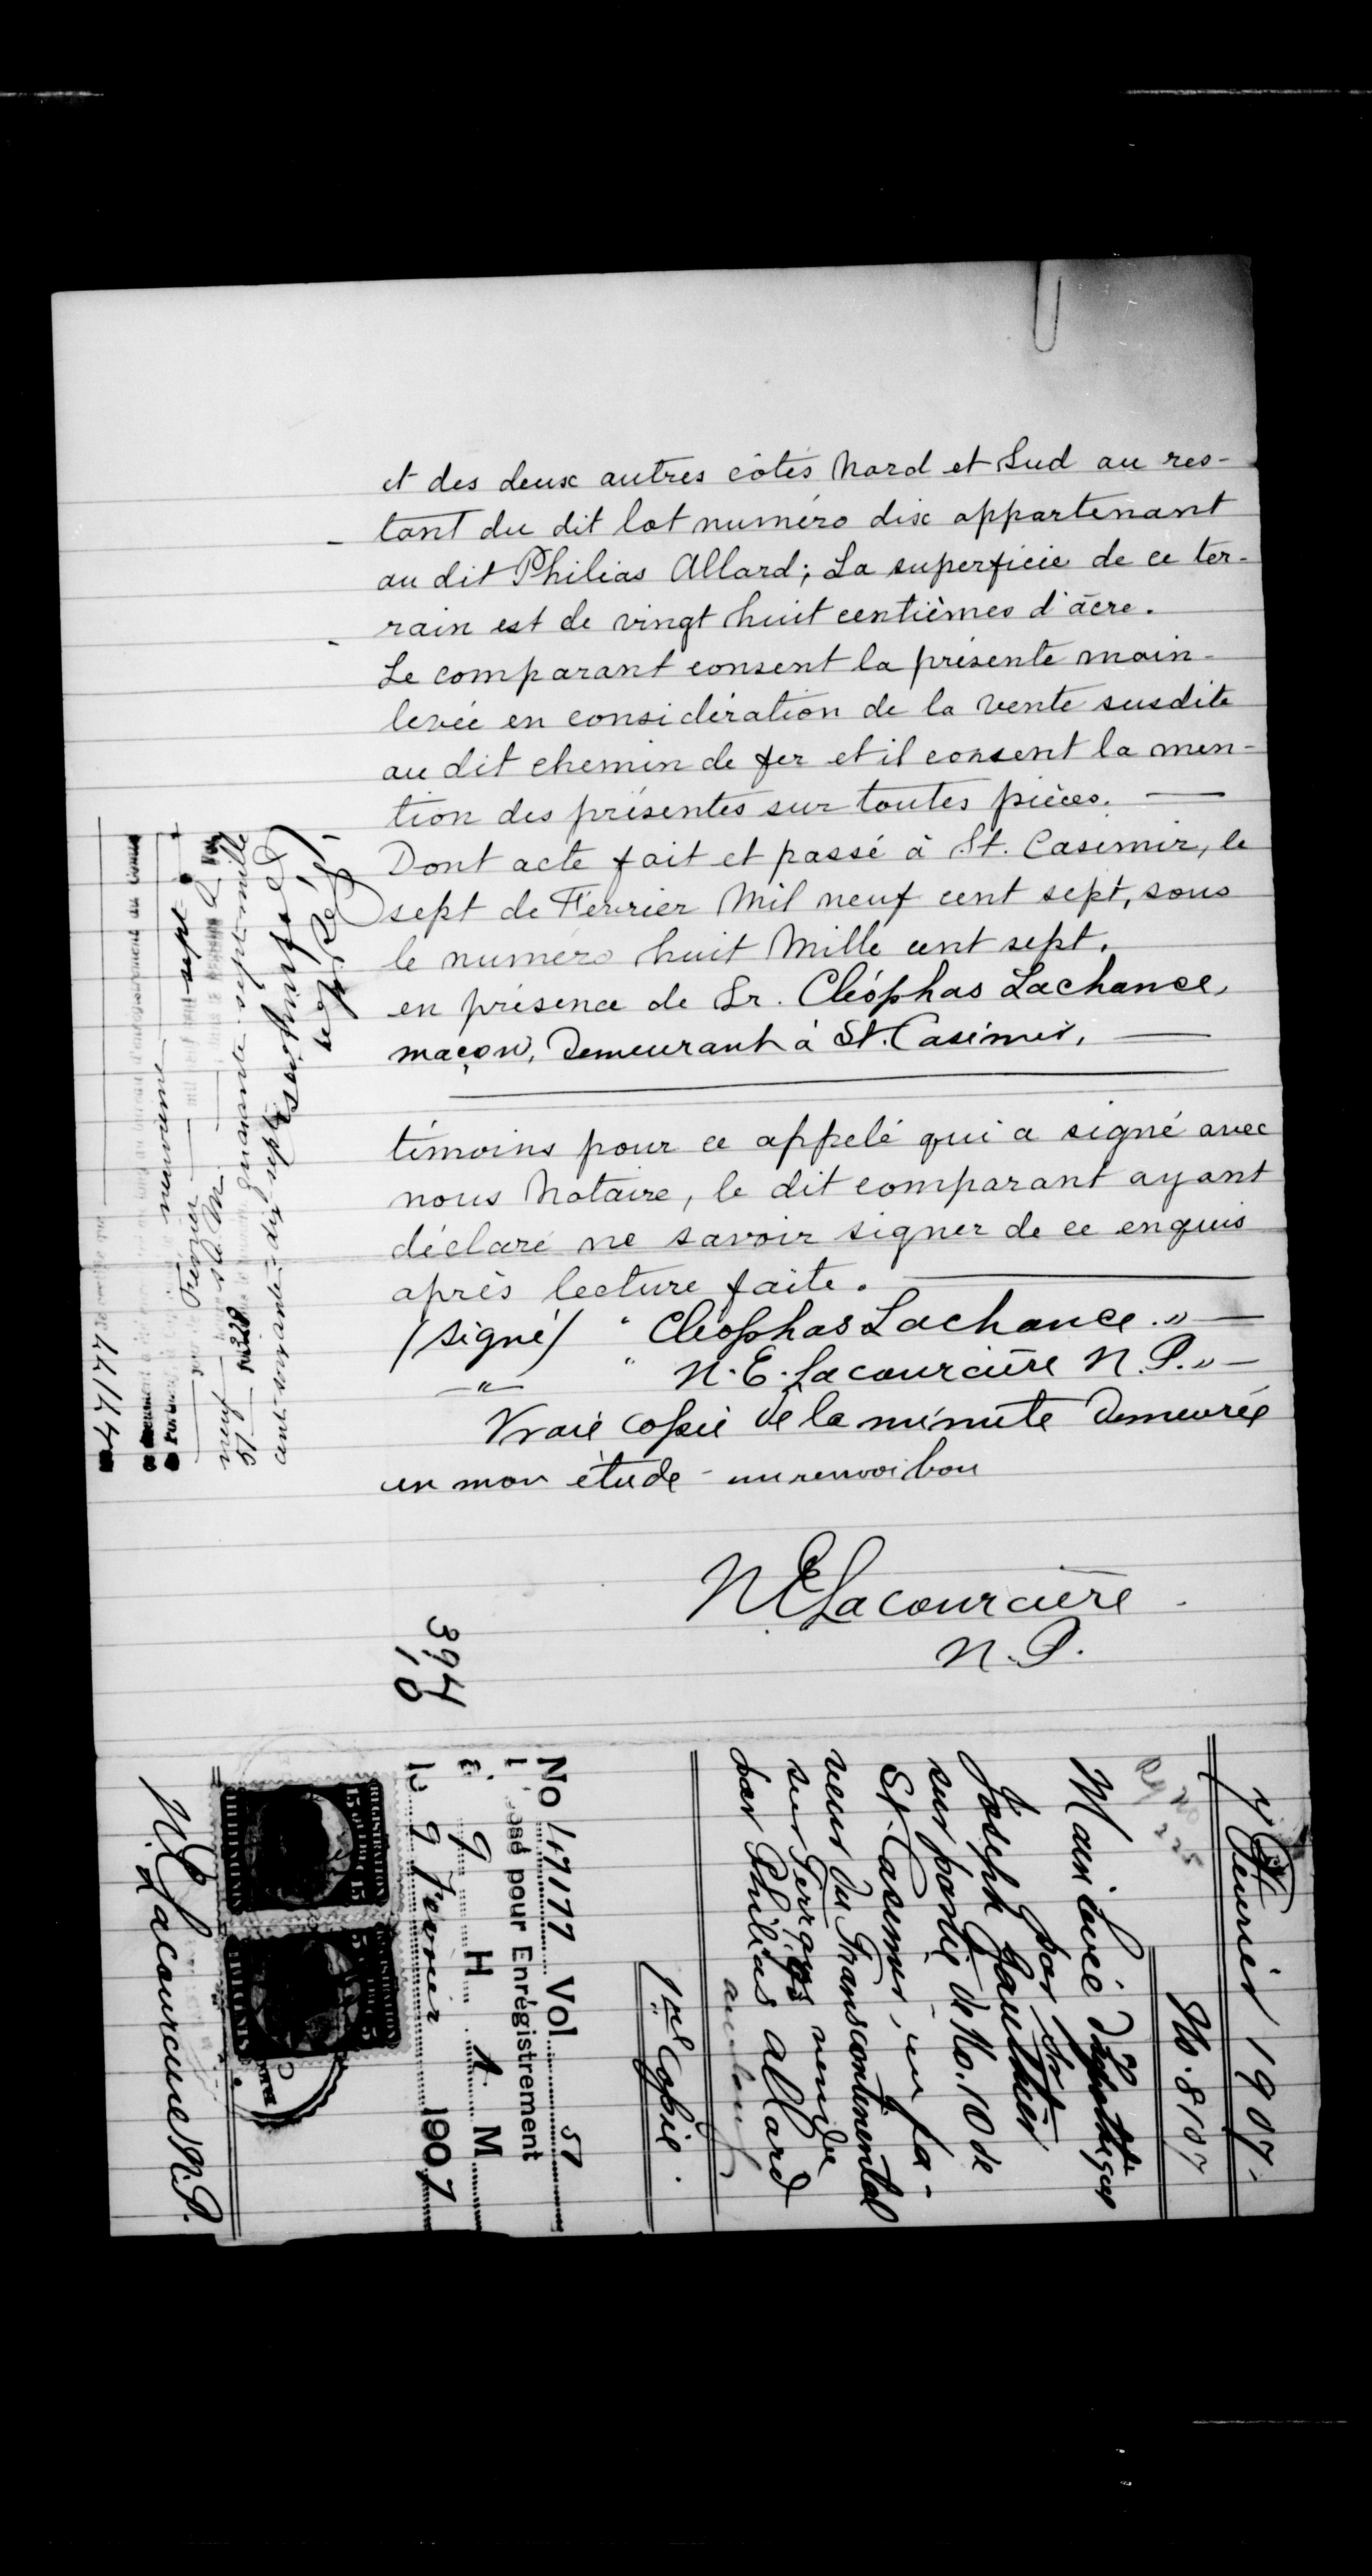 et des deux autres côtés Nord et Sud au res-
tant du dit lot numéro dix appartenant
au dit Philias Allard; La superficie de ce ter-
rain est de vingt huit centièmes d'âcre.
Le comparant consent la présente main-
levée en considération de la vente susdite
au dit chemin de fer et il consent la men-
tion des présentes sur toutes pièces. —
Dont acte fait et passé à St. Casimir, le
sept de Février Mil neuf cent sept, sous
le numéro huit Mille cent sept.
en présence de Sr. Cléophas Lachance,
maçon, Demeurant à St. Casimir, —
témoins pour ce appelé qui a signé avec
nous Notaire, le dit comparant ayant
déclaré ne savoir signer de ce enquis
après lecture faite. —
(signé) " Cléophas Lachance." —
—"— " N. E. Lacourcière N. P." —
Vraie copie de la minute Demeurée
en mon étude - un renvoi bon
N E Lacourcière
N. P.
394
10
47177
neuvième
Février sept
neuf
51 quarante sept mille
cent soixante dix sept
7 Février 1907.
No. 8107
Main levée d'hypothèque
par Sr
Joseph Gauthier
sur partie de No. 10 de
St. Casimir, en fa-
veur du Transcontinental
sur Terrain vendu
par Philias Allard
1re Copie.
No 47177 Vol 51
posé pour Enrégistrement
à 9 H A M
le 9 Février 1907
REGISTRATION 15
N. E. Lacourcière N. P.